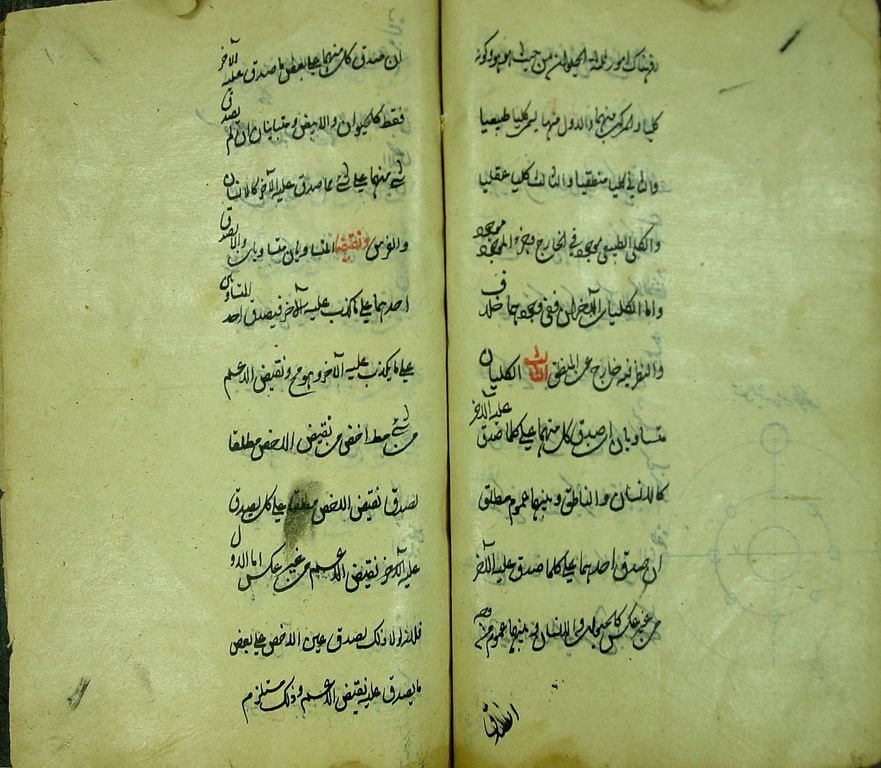 فهناك امور ثلثة الحيوان من حيث هو هو وكونه
كليا والمركب منهما والاول منها يسمى كليا طبيعيا
والثاني كليا منطقيا والثالث كليا عقليا
والكلي الطبيعي موجود في الخارج وجزء الموجود موجود
واما الكليان الآخران ففي وجودهما خلاف
والنظر فيه خارج عن المنطق الثالث الكليان
متساويان ان صدق كل منهما على كلما صدق عليه الآخر
كالانسان والناطق وبينهما عموم مطلق
ان صدق احدهما على كلما صدق عليه الآخر
من غير عكس كالحيوان والانسان وبينهما عموم من وجه
ان صدق
ان صدق كل منهما على بعض ما صدق عليه الآخر
فقط كالحيوان والابيض ومتباينان ان لم يصدق
شئ منهما على شئ مما صدق عليه الآخر كالانسان
والفرس ونقيضا المتساويان متساويان والا يصدق
احدهما على ما كذب عليه الآخر فيصدق احد المتساويين
على ما يكذب عليه الآخر وهو مح ونقيض الاعم
من شئ مطلقا اخص من نقيض الاخص مطلقا
لصدق نقيض الاخص مطلقا على كل يصدق
عليه الآخر نقيض الاعم من غير عكس اما الاول
فلانه لولا ذلك يصدق عين الاخص على بعض
ما يصدق عليه نقيض الاعم وذلك مستلزم